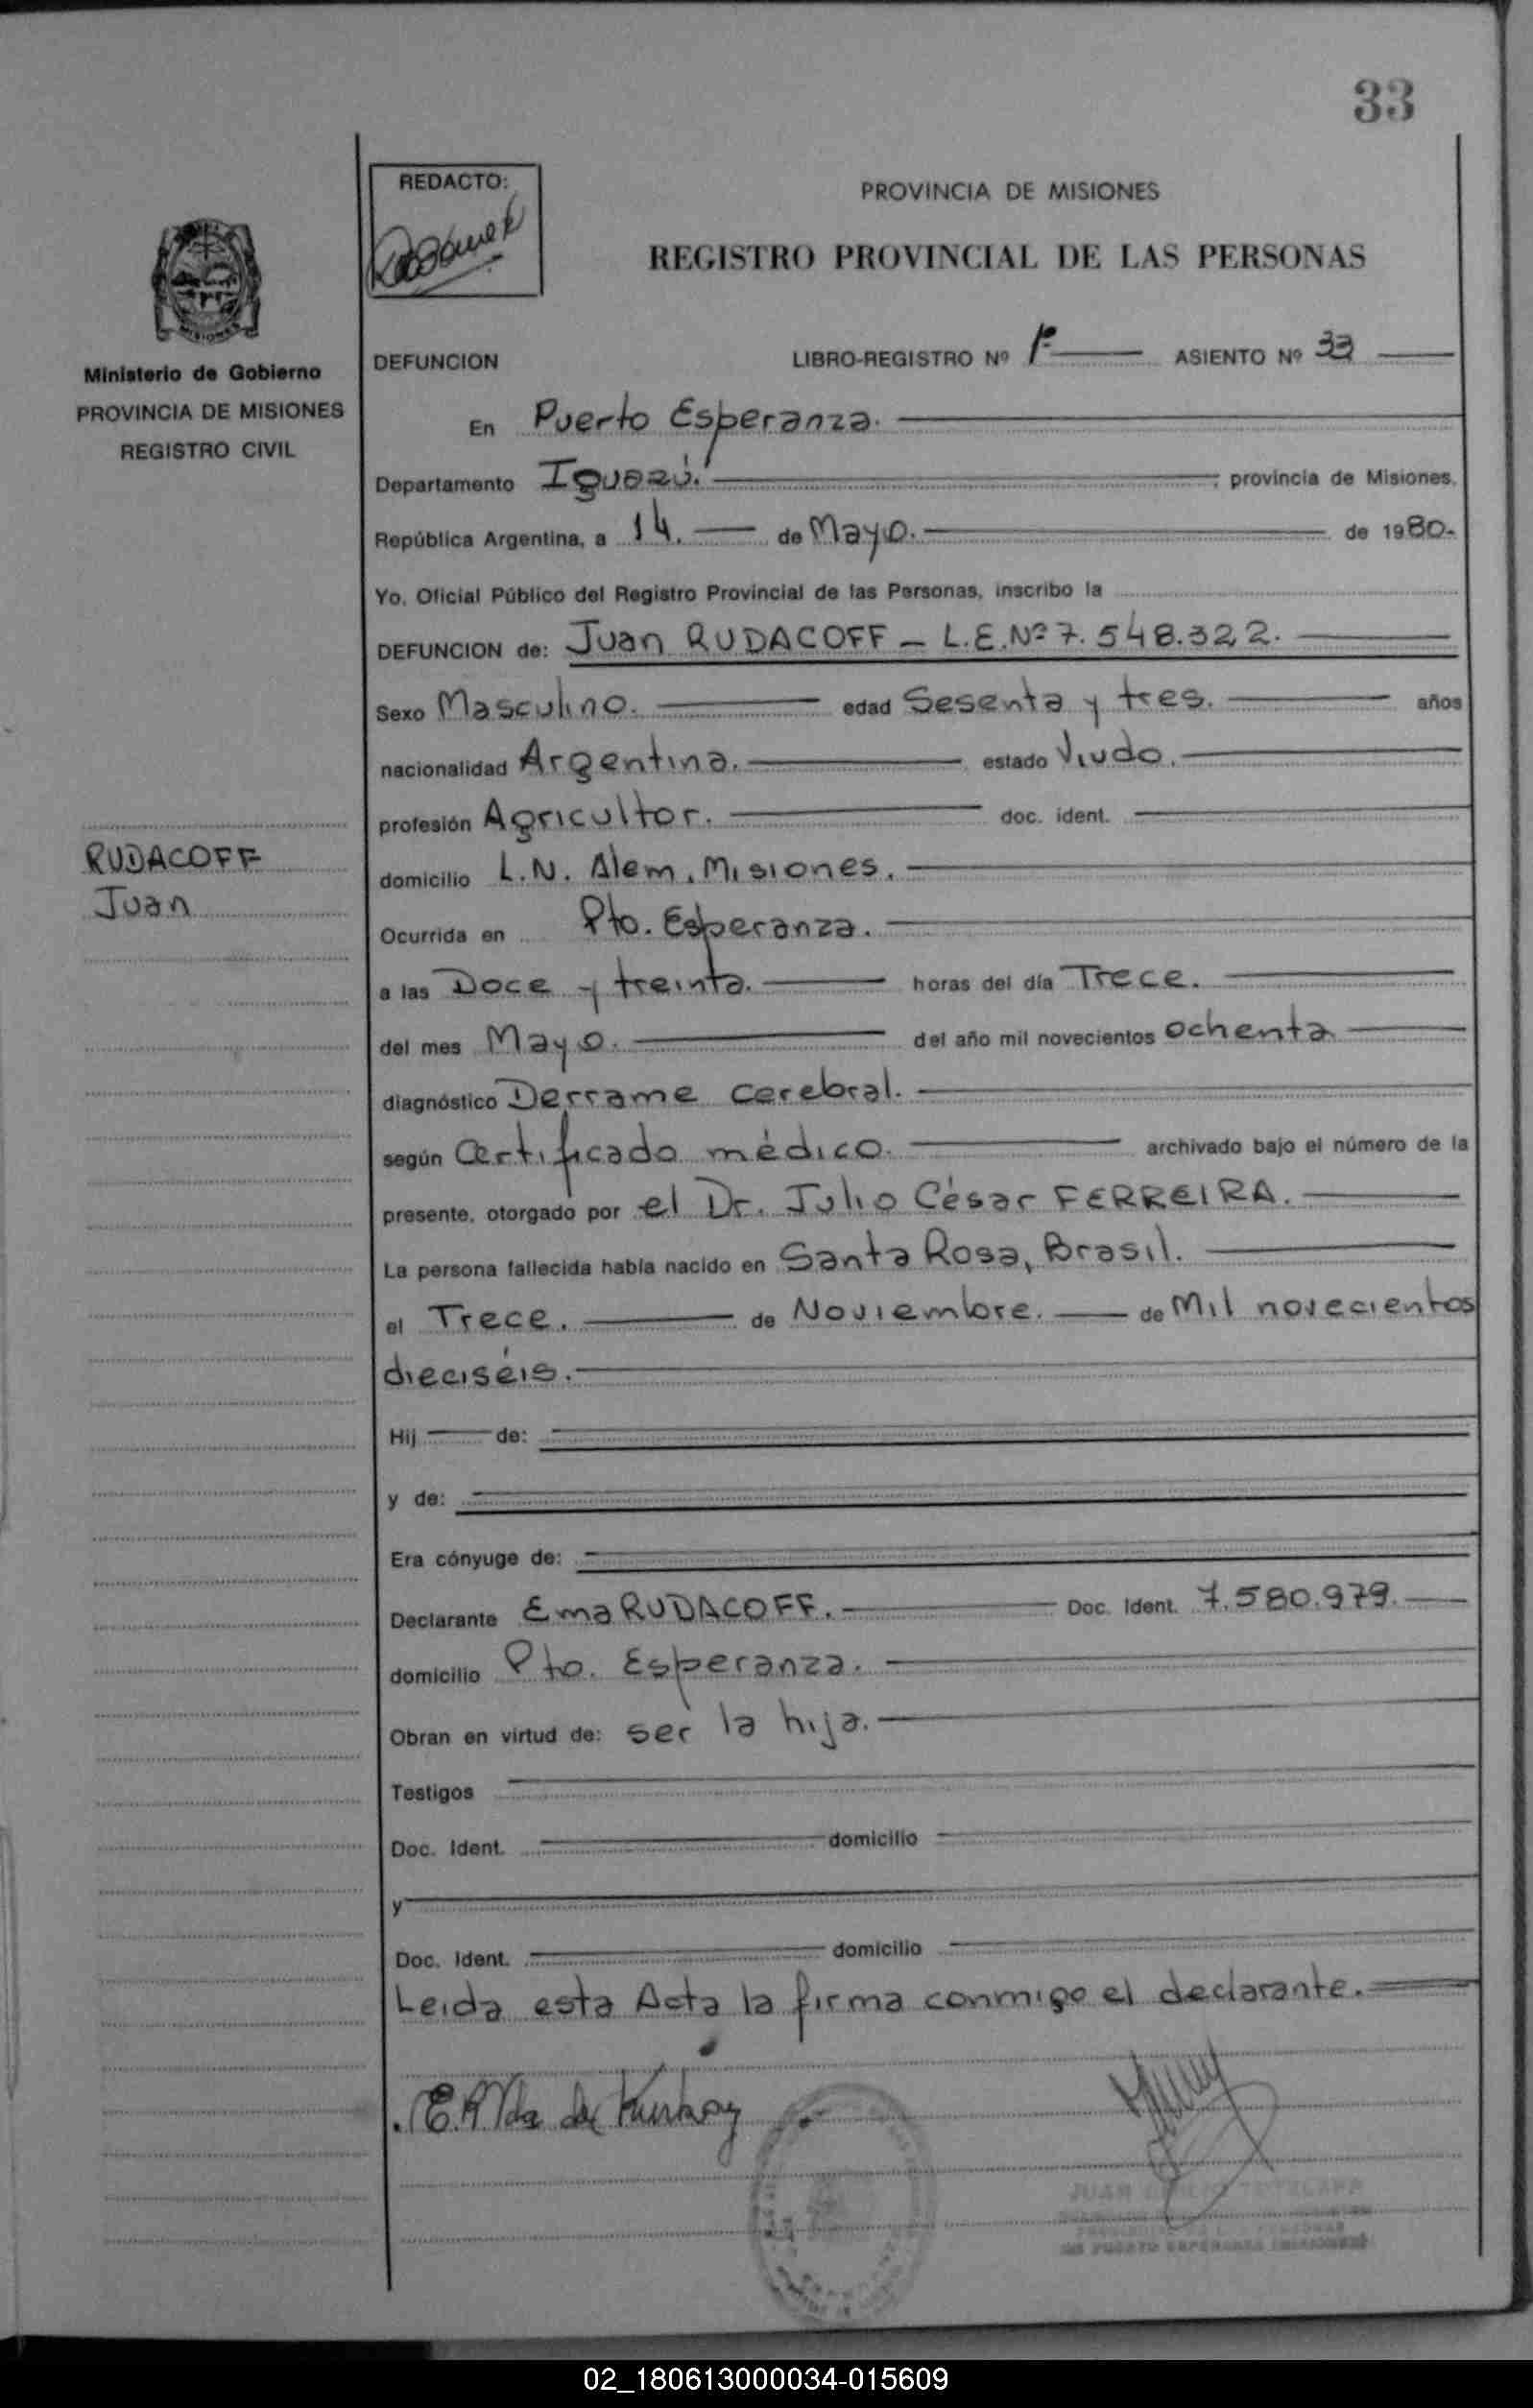 33
REDACTO:
PROVINCIA DE MISIONES
REGISTRO PROVINCIAL DE LAS PERSONAS
MISIONES
Ministerio de Gobierno
PROVINCIA DE MISIONES
REGISTRO CIVIL
DEFUNCION LIBRO-REGISTRO Nº 1º ASIENTO Nº 33
En Puerto Esperanza.
Departamento Iguazú. ; provincia de Misiones,
República Argentina, a 14. de Mayo. de 1980.
Yo, Oficial Público del Registro Provincial de las Personas, inscribo la
DEFUNCION de: Juan RUDACOFF - L.E.Nº 7.548.322.
Sexo Masculino. edad Sesenta y tres. años
nacionalidad Argentina. estado Viudo.
profesión Agricultor. doc. ident.
RUDACOFF
Juan
domicilio L.N. Alem, Misiones.
Ocurrida en Pto. Esperanza.
a las Doce y treinta. horas del día Trece.
del mes Mayo. del año mil novecientos ochenta
diagnóstico Derrame cerebral.
según Certificado médico. archivado bajo el número de la
presente, otorgado por el Dr. Julio César FERREIRA.
La persona fallecida había nacido en Santa Rosa, Brasil.
el Trece. de Noviembre. de Mil novecientos
dieciséis.
Hij de:
y de:
Era cónyuge de:
Declarante Ema RUDACOFF. Doc. Ident. 7.580.979.
domicilio Pto. Esperanza.
Obran en virtud de: ser la hija.
Testigos
Doc. Ident. domicilio
y
Doc. Ident. domicilio
Leida esta Acta la firma conmigo el declarante.
JUAN
02_180613000034-015609